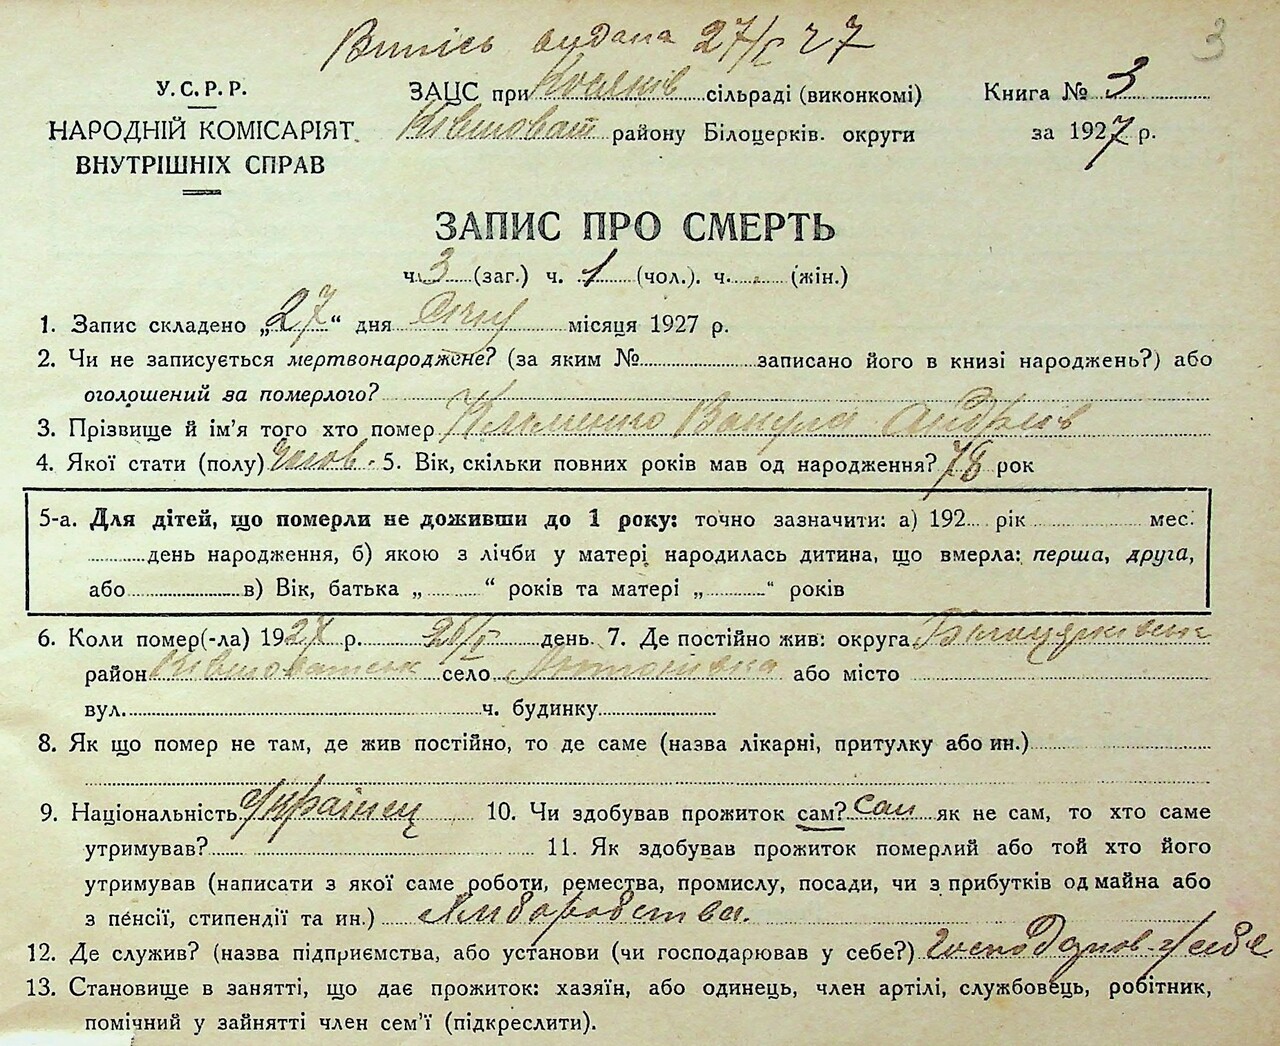 Випись видана 27/I 27
3
У.С.Р.Р.
НАРОДНІЙ КОМІСАРІЯТ
ВНУТРІШНІХ СПРАВ
ЗАЦС при Косяків сільраді (виконкомі)
Ківшоват району Білоцерків. округи
Книга № 3
за 1927 р.
ЗАПИС ПРО СМЕРТЬ
ч. 3 (заг.) ч. 1 (чол.). ч. (жін.)
1. Запис складено „27“ дня Січн місяця 1927 р.
2. Чи не записується мертвонароджене? (за яким № записано його в книзі народжень?) або
оголошений за померлого?
3. Прізвище й ім'я того хто помер Клименко Вакула Андреїв
4. Якої стати (полу) чолов. 5. Вік, скільки повних років мав од народження? 78 рок
5-а. Для дітей, що померли не доживши до 1 року: точно зазначити: а) 192 рік мес.
день народження, б) якою з лічби у матері народилась дитина, що вмерла: перша, друга,
або в) Вік, батька „ “ років та матері „ “ років
6. Коли помер(-ла) 1927 р. 26/I день. 7. Де постійно жив: округа Білоцерківськ
район Ківшоватськ село Антонівка або місто
вул. ч. будинку
8. Як що помер не там, де жив постійно, то де саме (назва лікарні, притулку або ин.)
9. Національність Українец 10. Чи здобував прожиток сам? сам як не сам, то хто саме
утримував? 11. Як здобував прожиток померлий або той хто його
утримував (написати з якої саме роботи, ремества, промислу, посади, чи з прибутків од майна або
з пенсії, стипендії та ин.) Хліборобства.
12. Де служив? (назва підприємства, або установи (чи господарював у себе?)
13. Становище в занятті, що дає прожиток: хазяїн, або одинець, член артілі, службовець, робітник,
помічний у зайнятті член сем'ї (підкреслити).